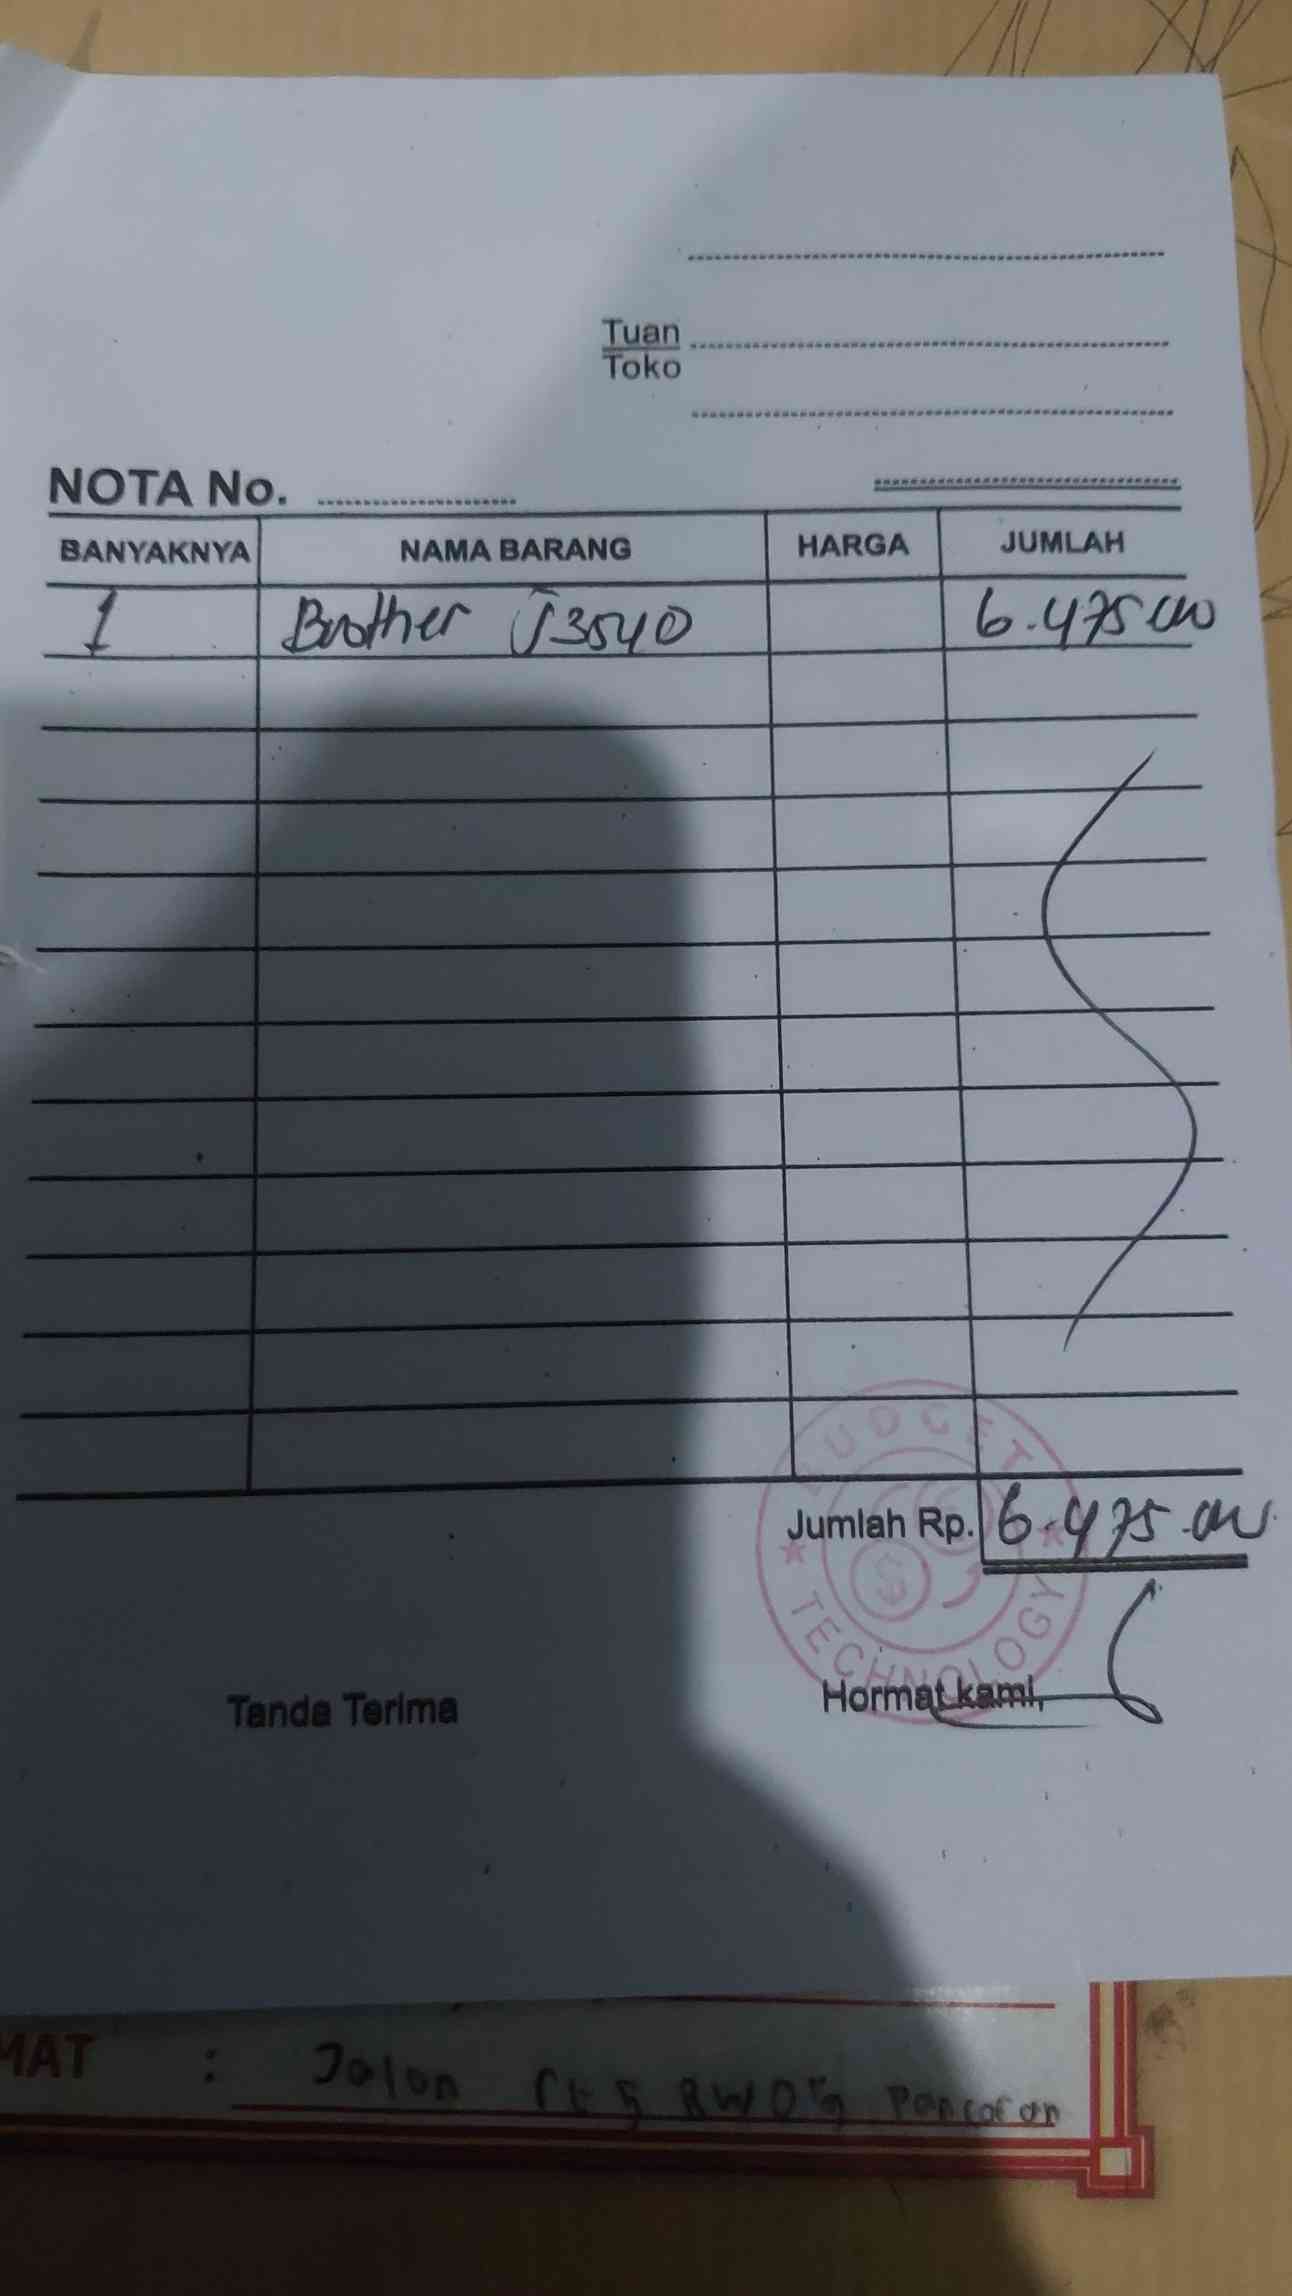 Tuan
Toko
NOTA No.
BANYAKNYA NAMA BARANG HARGA JUMLAH
1 Brother J3540 6.475.000
BUDGET
Jumlah Rp. 6.475.000
TECHNOLOGY
Tanda Terima Hormat kami,
MAT : Jalan Rt 5 RW 05 Pancoran